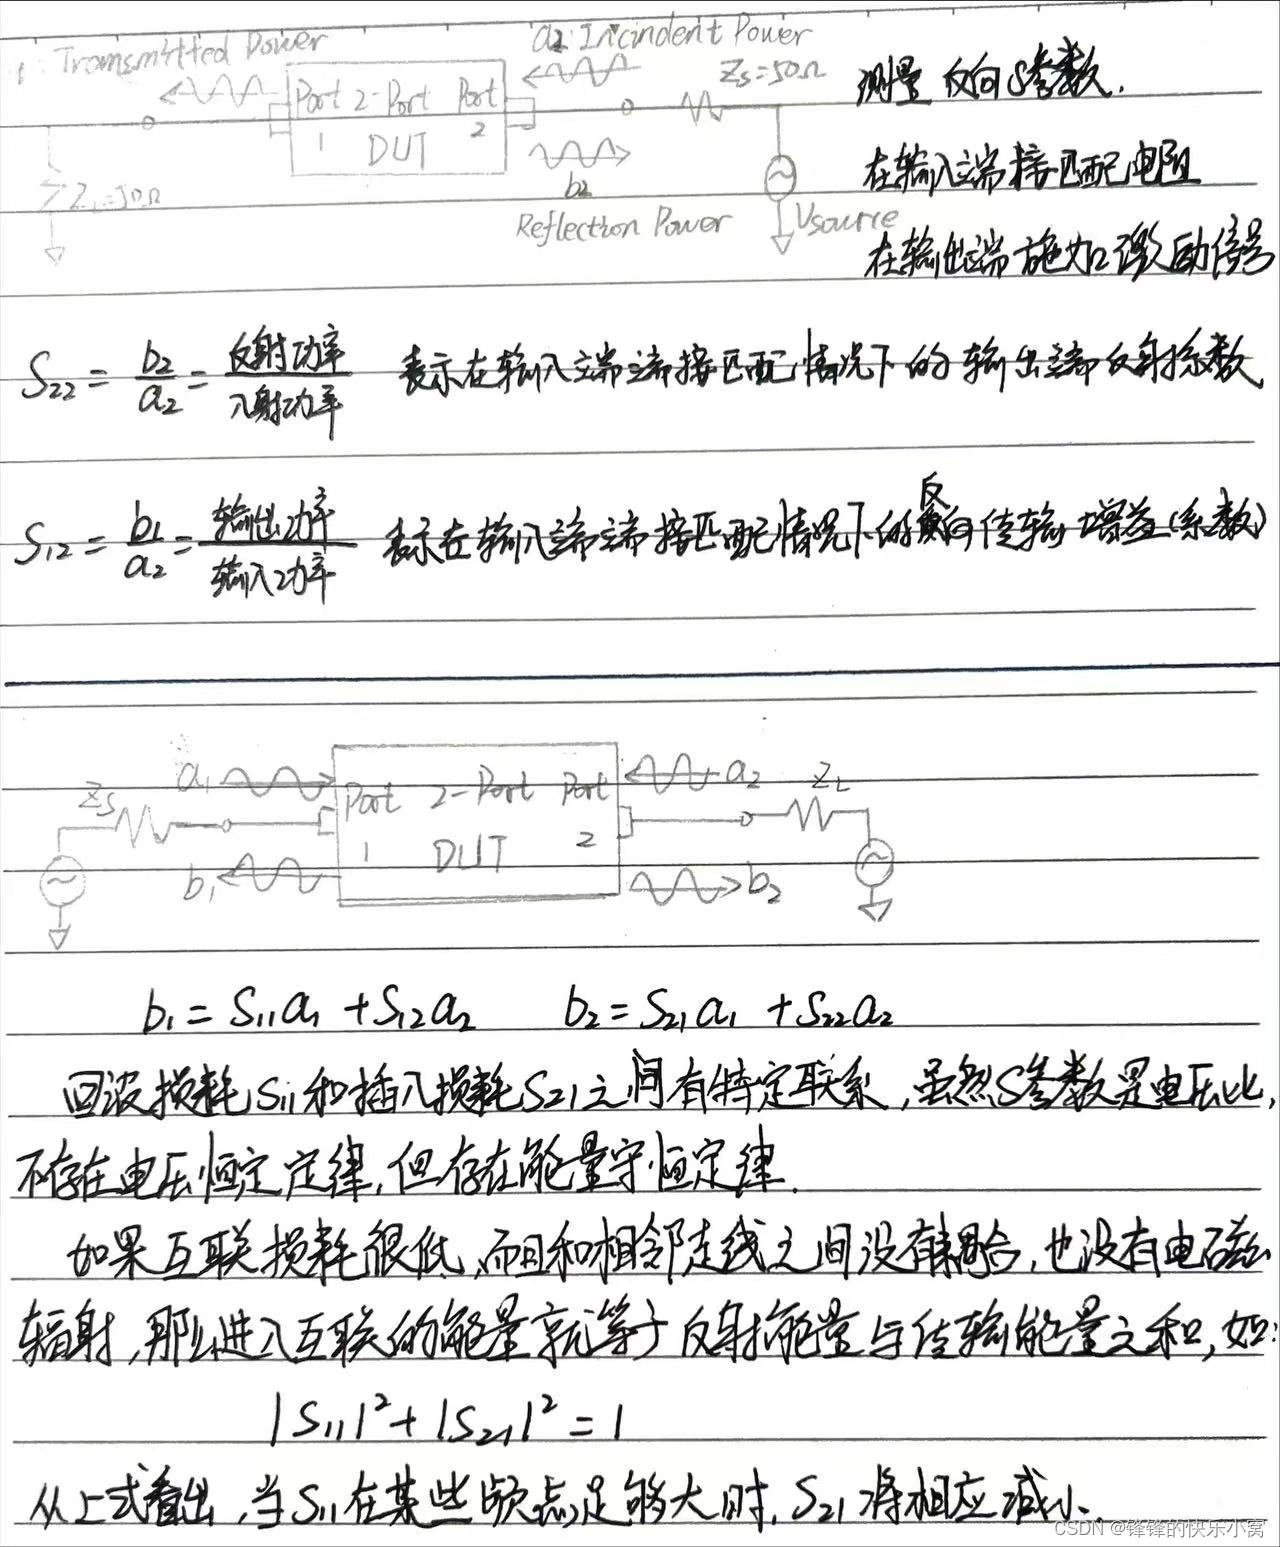 Transmitted Power
a2: Incindent Power
Zs=50Ω
测量反向S参数.
Port 2-Port Port
1 DUT 2
ZL=50Ω
b2
Reflection Power
Vsource
在输入端接匹配电阻
在输出端施加激励信号
S22 = b2/a2 = 反射功率/入射功率 表示在输入端端接匹配情况下的输出端反射系数
S12 = b1/a2 = 输出功率/输入功率 表示在输入端端接匹配情况下的反向传输增益(系数)
a1
a2
Zs
ZL
Port 2-Port Port
1 DUT 2
b1
b2
b1 = S11a1 + S12a2 b2 = S21a1 + S22a2
回波损耗S11和插入损耗S21之间有特定联系,虽然S参数是电压比,
不存在电压恒定定律,但存在能量守恒定律.
如果互联损耗很低,而且和相邻走线之间没有耦合,也没有电磁
辐射,那么进入互联的能量就等于反射能量与传输能量之和,如:
|S11|²+|S21|²=1
从上式看出,当S11在某些频点足够大时,S21将相应减小.
CSDN @锋锋的快乐小窝